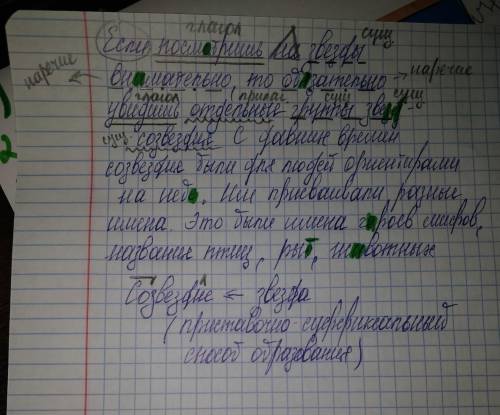 глагол
сущ
Если посмотришь на звезды
наречие
внимательно, то обязательно → наречие
глагол прилаг сущ сущ
увидишь отдельные группы звезд
сущ созвездие С давних времен
созвездие были для людей ориентирами
на небе. Им присваивали разные
имена. Это были имена героев мифов,
названия птиц, рыб, животных
Созвездие ← звезда
(приставочно-суффиксальный
способ образования)